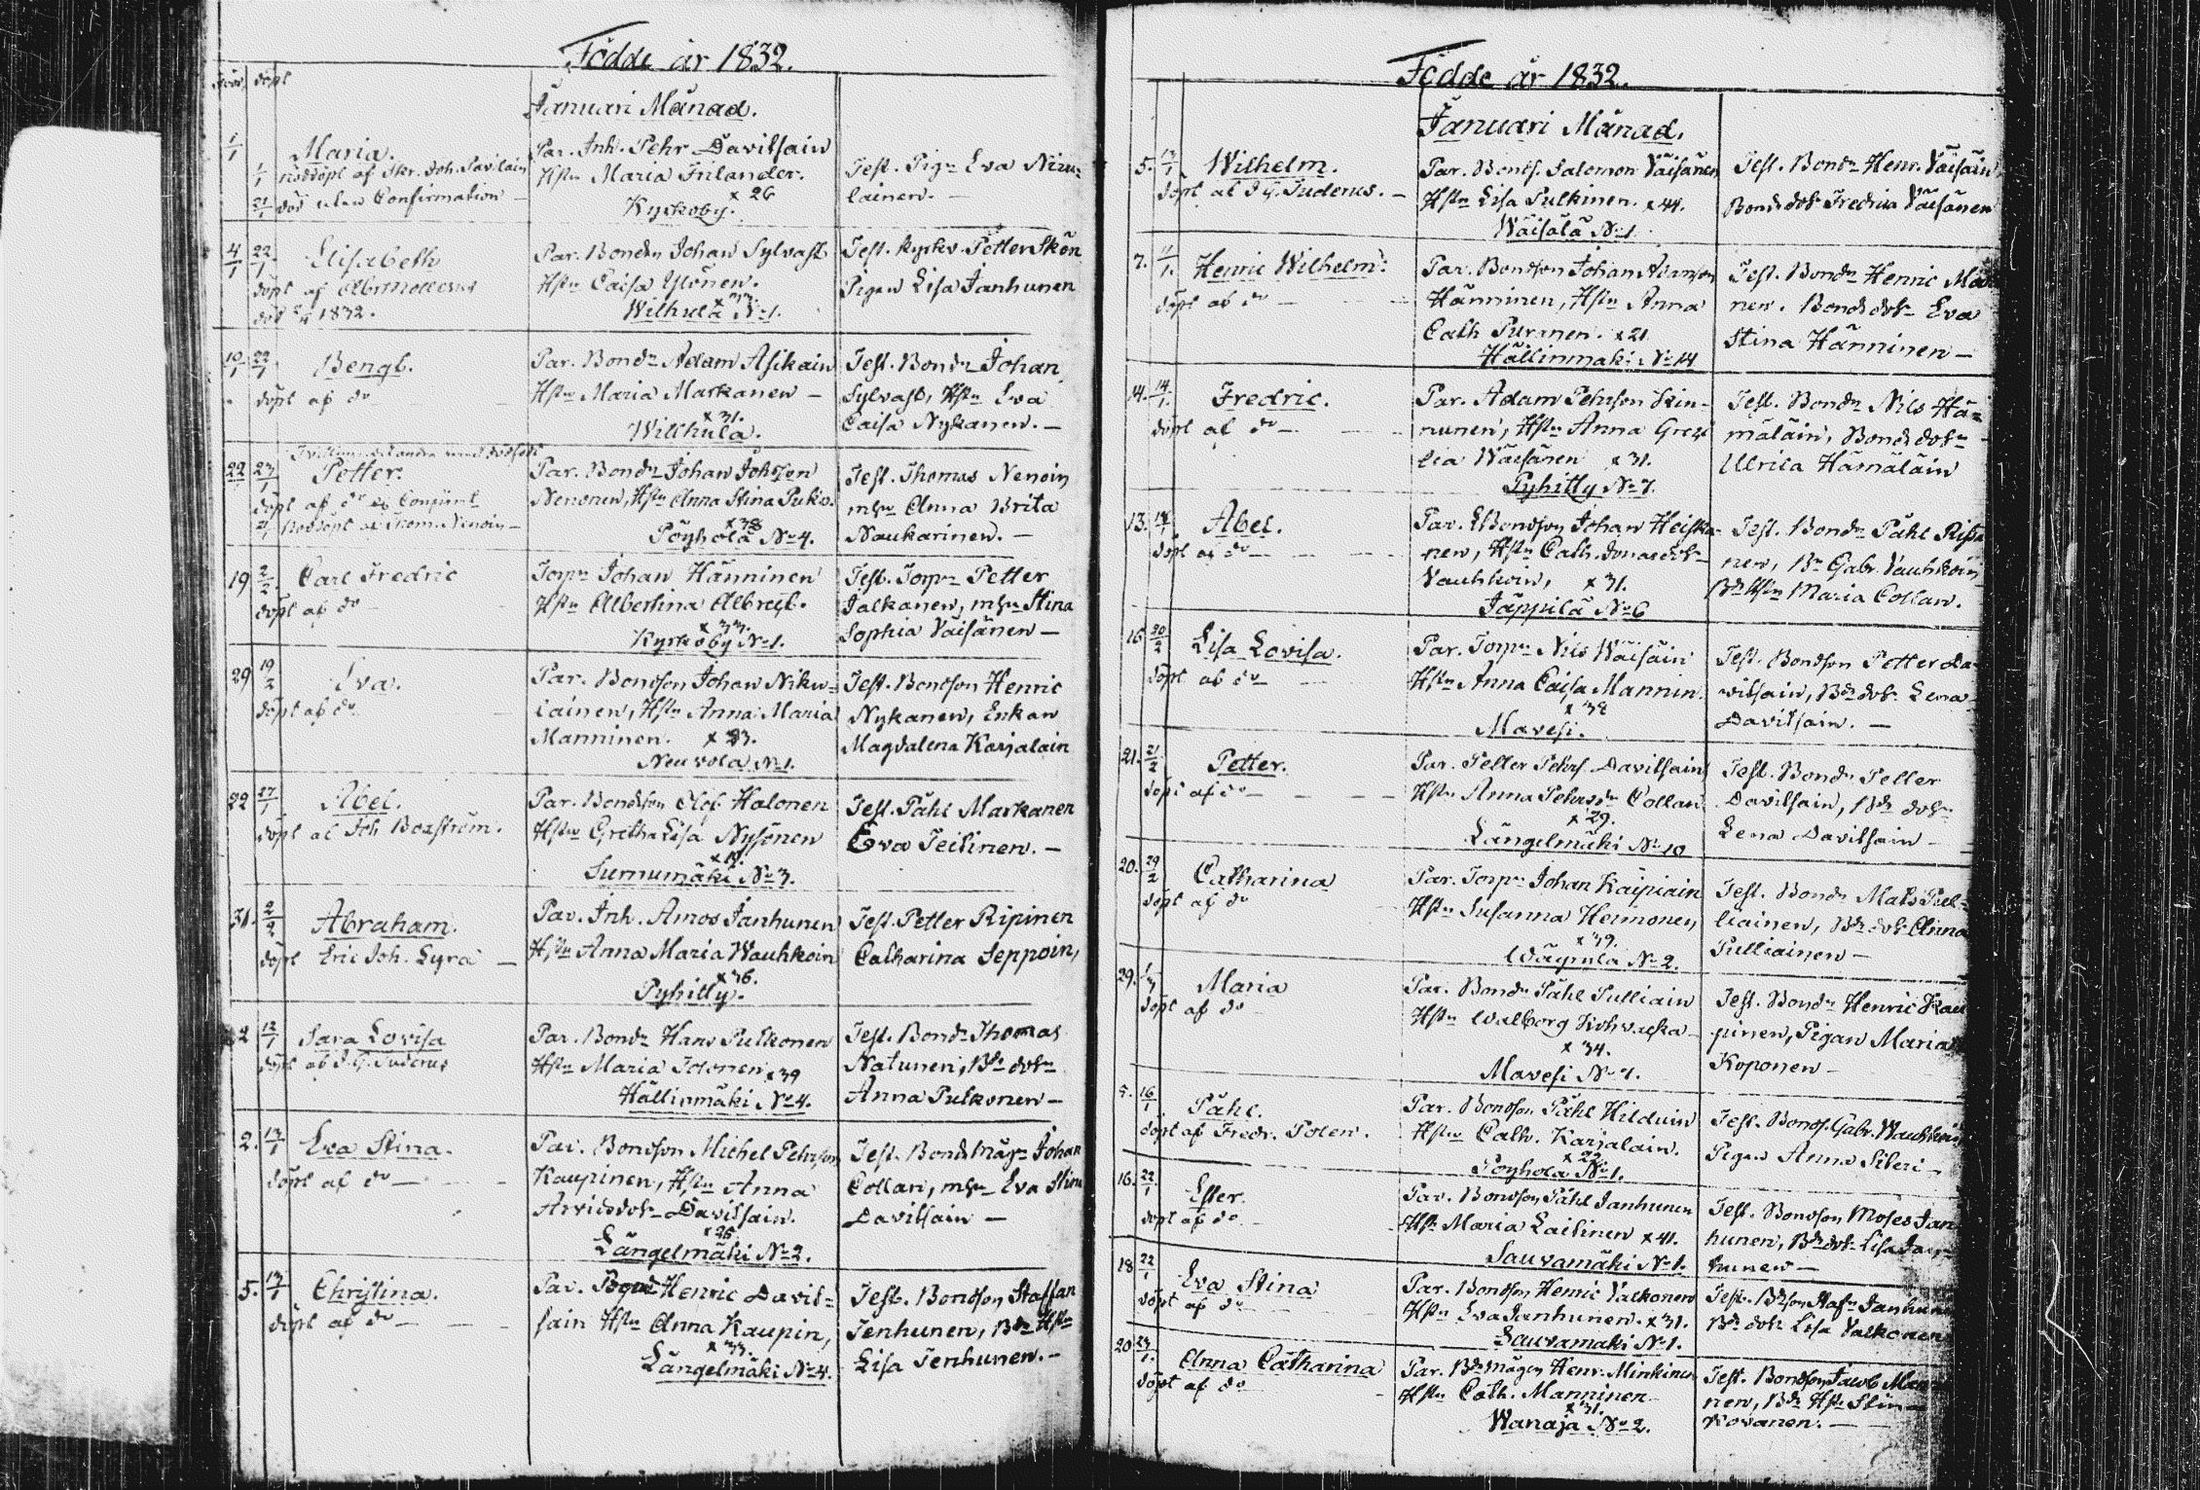 Födde år 1832.
född döpt
Januari Månad.
1/1
Maria.
1/1 nöddöpt af Skr. Joh. Savilain
21/1 död utan Confirmation —
Par. Inh. Pehr Davitsain
Hstn Maria Frilander.
x 26
Kyrkoby.
Test. Pig. Eva Niru-
lainen. —
4/1 22/1 Elisabeth
döpt af Alb. Mollerus
död 1832.
Par. Bondn Johan Sylvast
Hstn Caisa Ylönen.
x 33.
Wilhula No 1.
Test. Kyrkv. Petter Skön
Pigan Lisa Janhunen
10/1 22/1 Bengt.
döpt af do
Par. Bondn Adam Asikain
Hstn Maria Markanen —
x 31.
Wilhula.
Test. Bondn Johan
Sylvast, Hstn Eva
Caisa Nykanen. —
22 23/1 Petter.
döpt af do
nöddöpt af Thom. Nenoin —
Par. Bondn Johan Johsson
Nenonen, Hstn Anna Stina Puko.
x 38
Pöyhölä No 4.
Test. Thomas Nenoin
mhn Anna Brita
Naukarinen. —
19 2/2 Carl Fredric
döpt af do —
Torpn Johan Hänninen
Hstn Albertina Albregt.
x 33.
Kyrkoby No 1.
Test. Torpn Petter
Jalkanen, mhn Stina
Sophia Väisänen —
29 19/2 Eva.
döpt af do
Par. Bondson Johan Niku-
lainen, Hstn Anna Maria
Manninen. x 23.
Neuvola No 1.
Test. Bondson Henric
Nykanen, Enkan
Magdalena Karjalain
22 27/1 Abel.
döpt af Joh Boxström.
Par. Bondson Olof Halonen
Hstn Gretha Lisa Nysönen
x 19
Surnumäki No 3.
Test. Påhl Markanen
Eva Teilinen. —
31. 2/2 Abraham.
döpt Eric Joh. Lyra —
Par. Inh. Amos Janhunen
Hstn Anna Maria Wauhkoin
x 36.
Pyhitty.
Test. Petter Ripinen
Catharina Seppoin,
2 12/1 Sara Lovisa
döpt af J. G. Tuderus
Par. Bondn Hans Pulkonen
Hstn Maria Tolonen x 39
Hällinmäki No 4.
Test. Bondn Thomas
Natunen, Bdn dotn
Anna Pulkonen —
2. 13/1 Eva Stina.
döpt af do —
Par. Bondson Michel Pehrson
Kaupinen, Hstn Anna
Arvidsdotr Davitsain.
x 26
Längelmäki No 2.
Test. Bondmågn Johan
Collan, mhn Eva Stina
Davitsain —
5. 13/1 Christina.
döpt af do —
Par. Bond Henric Davit-
sain Hstn Anna Kaupin,
x 33.
Längelmäki No 4.
Test. Bondson Staffan
Tenhunen, Bdn Hstn
Lisa Tenhunen. —
Födde år 1832.
Januari Månad.
5. 13/1 Wilhelm.
döpt af J. G. Tuderus. —
Par. Bonds. Salomon Väisänen
Hstn Lisa Pulkinen. x 44.
Wäisälä No 1
Test. Bondn Henr. Väisäin
Bonds dotr Fredrica Väisänen
7. 11/1. Henric Wilhelm.
döpt af do —
Par. Bondson Johan Adamson
Hänninen, Hstn Anna
Cath Puranen. x 21
Hällinmäki No 14
Test. Bondn Henric
nen. Bonds dotr Eva
Stina Hänninen —
14. 14/1. Fredric.
döpt af do —
Par. Adam Pehrson Kin-
nunen, Hstn Anna Grete
lisa Wäisänen x 31.
Pyhitty No 7.
Test. Bondn Nils Hä-
mäläin, Bonds dotn
Ulrica Hämäläin
13. 18/1 Abel.
döpt af do —
Par. Bondson Johan Heiska-
nen, Hstn Cath. Jonaedotr
Vauhkoin, x 31.
Jäppilä No 6
Test. Bondn Påhl Rissa
nen, Bn Gabr. Vauhkoin
Bd Hstn Maria Collan.
16. 20/2 Lisa Lovisa.
döpt af do
Par. Torpn Nils Wäisäin
Hstn Anna Caisa Mannin.
x 38
Mavesi.
Test. Bondson Petter Da-
vitsain, Bdn dotr Lena
Davitsain. —
21. 21/2 Petter.
döpt af do —
Par. Petter Pehrs. Davitsain
Hstn Anna Pehrsdr Collan
x 29.
Längelmäki No 10
Test. Bondn Petter
Davitsain, Bdn dotr
Lena Davitsain —
20. 29/2 Catharina
döpt af do
Par. Torpn Johan Kaipiain
Hstn Susanna Hermonen,
x 39.
Test. Bondn Mats Pul-
liainen, Bdn dotr Anna
Pulliainen —
29. Maria
döpt af do —
Par. Bondn Påhl Pulliain
Hstn Walborg Kohvacka
x 34.
Mavesi No 7.
Test. Bondn Henric Kau
pinen, Pigan Maria
Koponen —
5. 16/1 Påhl.
döpt af Fredr. Polen.
Par. Bondson Påhl Hilduin
Hstn Cath. Karjalain.
x 22
Pöyhölä No 1.
Test. Bonds. Gabr. Wauhkoin
Pigan Anna Sileri —
16. 22/1 Ester.
döpt af do
Par. Bondson Påhl Janhunen
Hstn Maria Laitinen x 41.
Sauvamäki No 1.
Test. Bondson Moses Jan
hunen, Bdn dotr Lisa Jan-
hunen —
18 22/1 Eva Stina
döpt af do
Par. Bondson Henric Valkonen
Hstn Eva Janhunen. x 31.
Sauvamäki No 1.
Test. Bdson Stafn Janhunen
Bdn dotr Lisa Valkonen
20 23/1. Anna Catharina
döpt af do
Par. Bdmågen Henr. Minkinen
Hstn Cath. Manninen
x 31.
Wanaja No 2.
Test. Bondson Jacob Man
nen, Bdn Hstn Stin
Kovanen. —